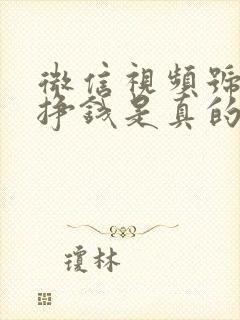 微信視頻號
掙錢是真的
瓊林